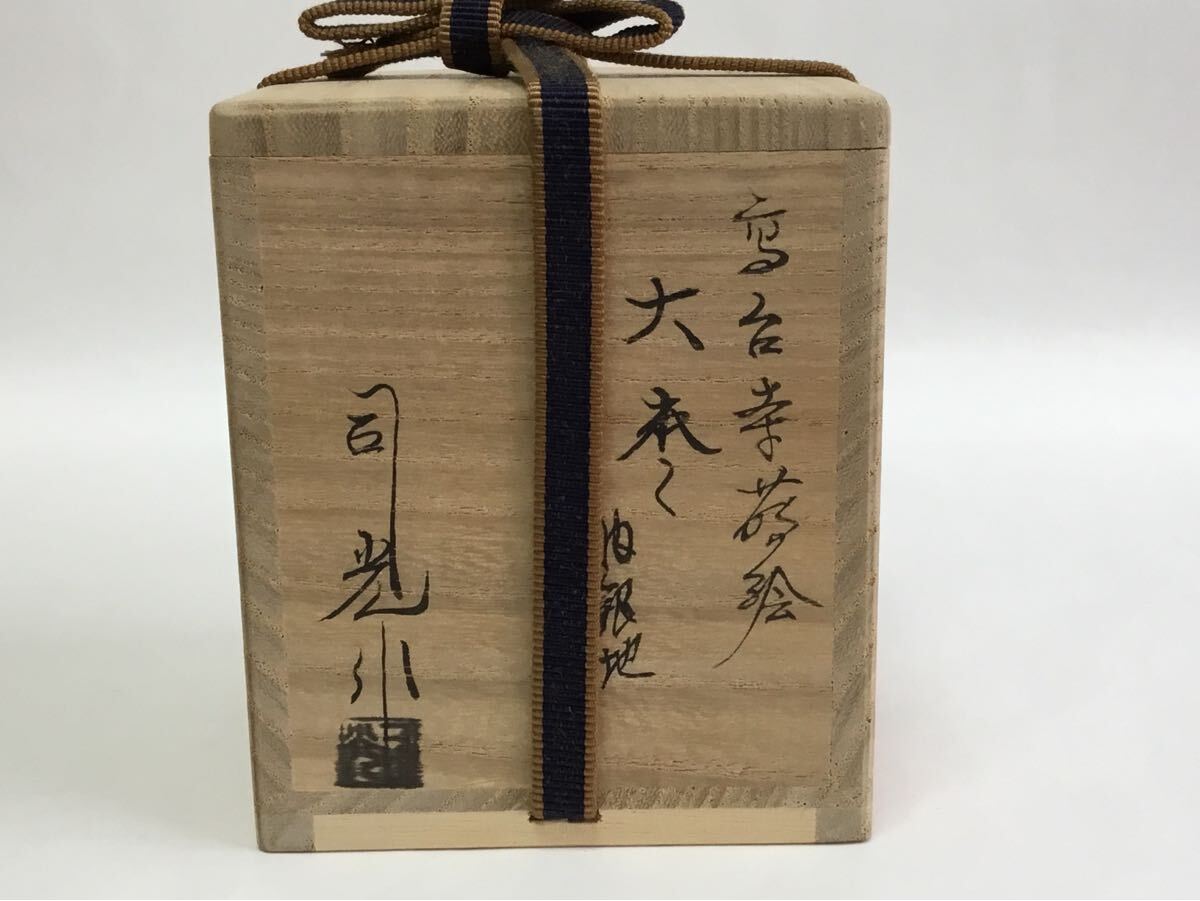 高台寺蒔絵
大棗
内銀地
司光作